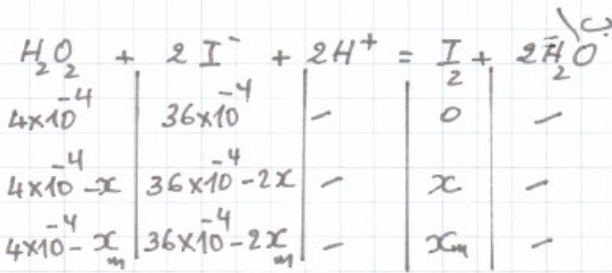 ب\
H₂O₂ + 2 I⁻ + 2H⁺ = I₂ + 2H₂O
4×10⁻⁴ | 36×10⁻⁴ | - | 0 | -
4×10⁻⁴-x | 36×10⁻⁴-2x | - | x | -
4×10⁻⁴-xₘ | 36×10⁻⁴-2xₘ | - | xₘ | -